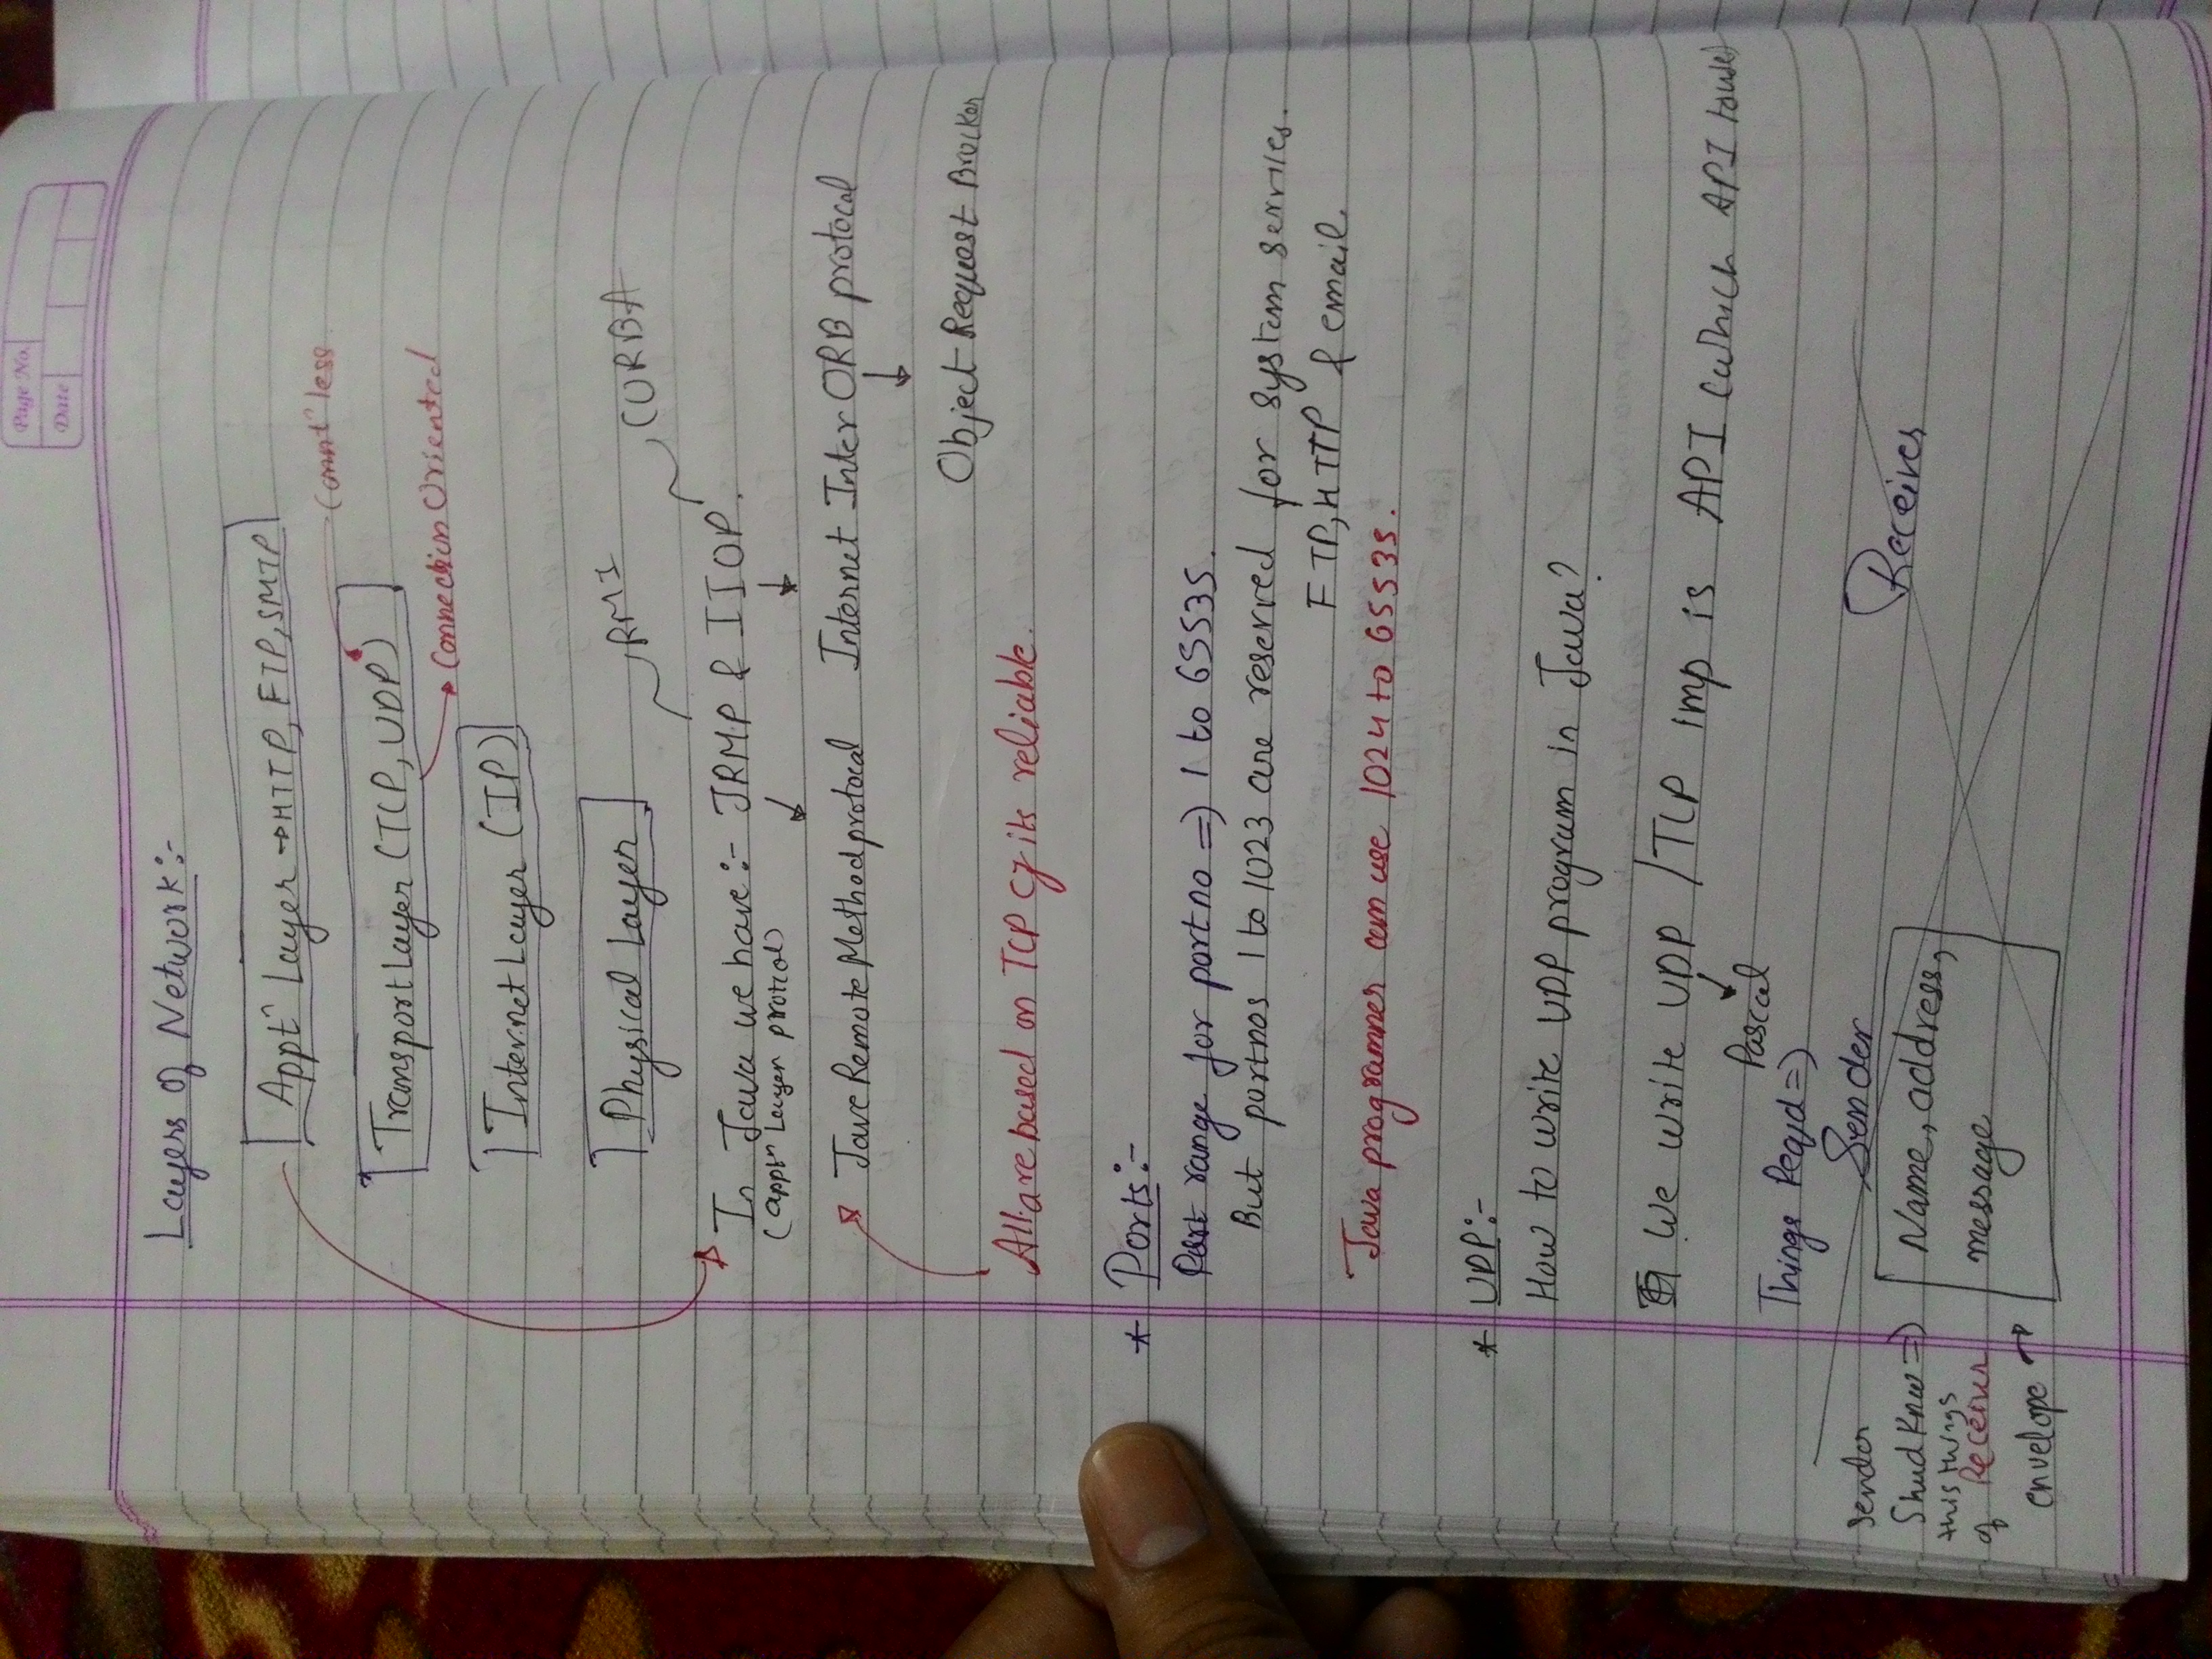 Page No.
Date
Layers of Network:-
Apptⁿ Layer → HTTP, FTP, SMTP
Conntⁿ less
Transport Layer (TCP, UDP)
Connection Oriented
Internet Layer (IP)
Physical Layer
RMI
CORBA
In Java we have:- JRMP & IIOP.
(apptn Layer protcol)
Java Remote Method protocal Internet Inter ORB protocal
Object Request Brocker
All are based on TCP its reliable.
* Ports:-
range for port no => 1 to 65535.
But portnos 1 to 1023 are reserved for system services.
FTP, HTTP & email.
Java programmer can use 1024 to 65535.
* UDP:-
How to write UDP program in Java?
We write UDP / TCP imp is API (which API to use)
Pascal
Things Reqd =>
Sender
Receiver
sender
Shud Knw =>
this things
of Receiver
envelope →
Name, address,
message